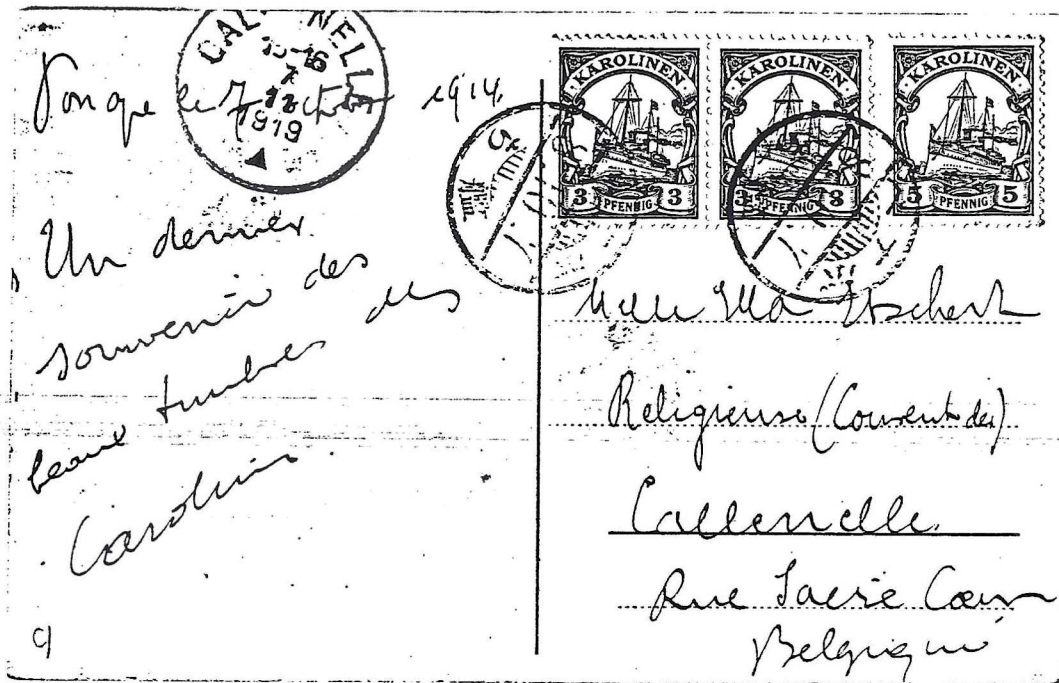 CAL NELL
15-16
7
12
1919
le 7 1914.
Un dernier
souvenir des
beaux timbres des
Carolines
KAROLINEN
3 PFENNIG 3
KAROLINEN
3 PFENNIG 3
KAROLINEN
5 PFENNIG 5
Melle Ella
Religieuse (Couvent des)
Callenelle
Rue Sacré Coeur
Belgique